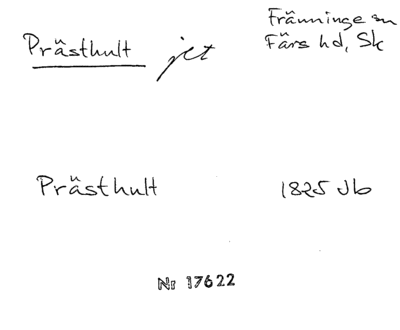 Främninge sn
Prästhult jet Färs hd, Sk
Prästhult 1825 Jb
Nr 17622